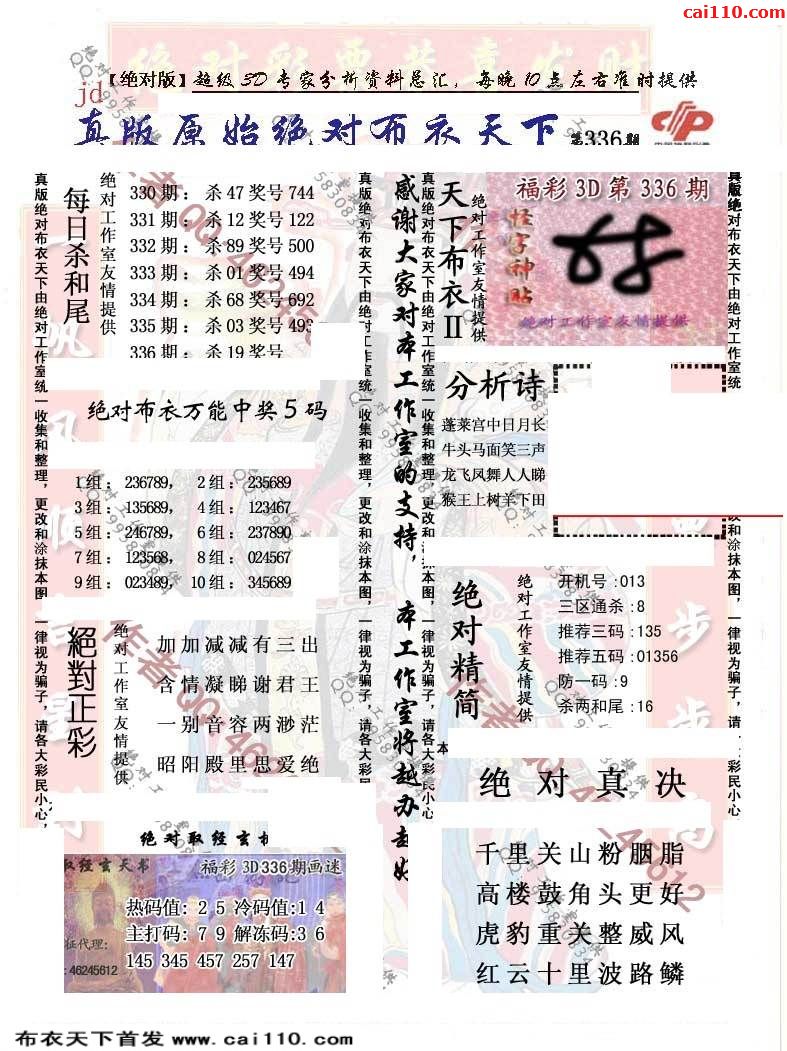 cai110.com
【绝对版】超级3D专家分析资料总汇，每晚10点左右准时提供
jd
真版原始绝对布衣天下 第336期
真版绝对布衣天下由绝对工作室统一收集和整理，更改和涂抹本图，一律视为骗子，请各大彩民小心，
每日杀和尾
绝对工作室友情提供
330期：杀47奖号744
331期：杀12奖号122
332期：杀89奖号500
333期：杀01奖号494
334期：杀68奖号692
335期：杀03奖号493
336期：杀19奖号
绝对布衣万能中奖5码
1组：236789， 2组：235689
3组：135689， 4组：123467
5组：246789， 6组：237890
7组：123568， 8组：024567
9组：023489， 10组：345689
絕對正彩
绝对工作室友情提供
加加减减有三出
含情凝睇谢君王
一别音容两渺茫
昭阳殿里思爱绝
绝对取经玄
取经玄天书
福彩3D336期画迷
热码值: 2 5 冷码值:1 4
主打码: 7 9 解冻码:3 6
145 345 457 257 147
征代理:
: 46245612
真版绝对布衣天下由绝对工作室统一收集和整理，更改和涂抹本图，一律视为骗子，请各大彩民
感谢大家对本工作室的支持，本工作室将越办越好
真版绝对布衣天下由绝对工作室统一收集和整理，更改和涂抹本图，一律视为骗子，请各大彩民小心
天下布衣II
绝对工作室友情提供
福彩3D第336期
怪字神贴
绝对工作室友情提供
分析诗
蓬莱宫中日月长
牛头马面笑三声
龙飞凤舞人人睇
猴王上树羊下田
绝对精简
绝对工作室友情提供
开机号:013
三区通杀:8
推荐三码:135
推荐五码:01356
防一码:9
杀两和尾:16
本
绝对真决
千里关山粉胭脂
高楼鼓角头更好
虎豹重关整威风
红云十里波路鳞
真版绝对布衣天下由绝对工作室统
改和涂抹本图，一律视为骗子，请各大彩民小心，
布衣天下首发 www.cai110.com